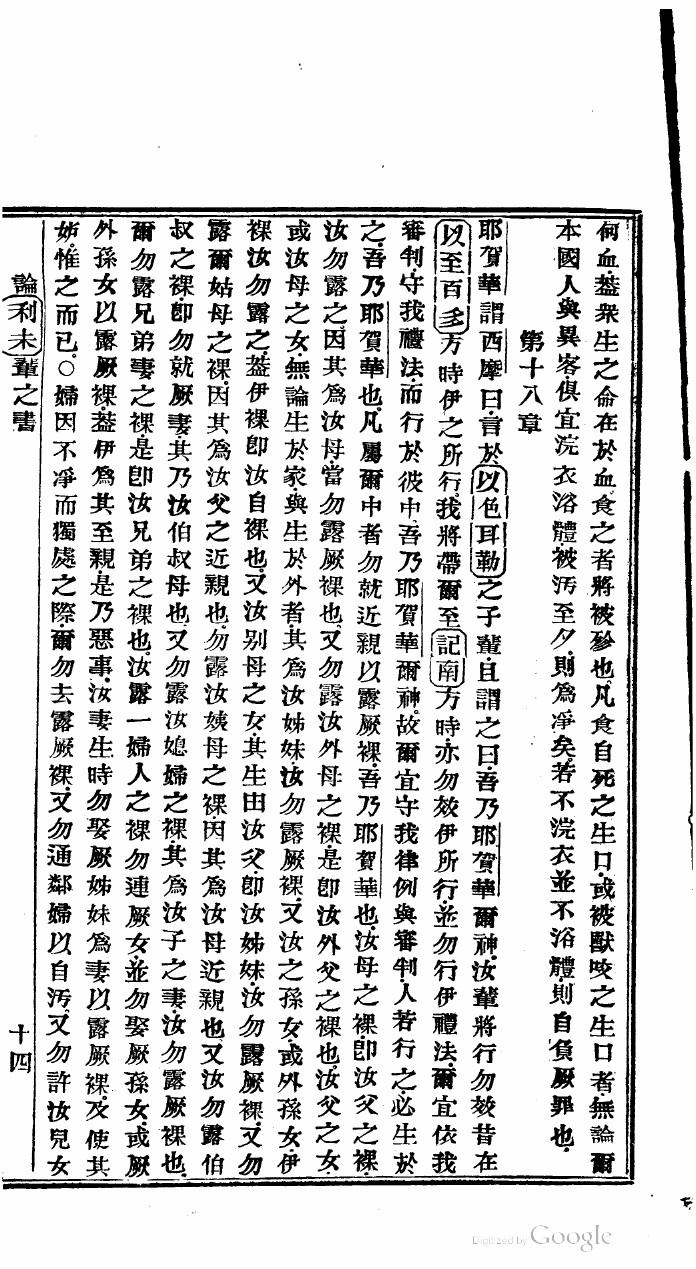 何血蓋眾生之命在於血食之者將被殄也凡食自死之生口或被獸咬之生口者無論爾
本國人與異客俱宜浣衣浴體被汚至夕則爲凈矣若不浣衣並不浴體則自負厥罪也
第十八章
耶賀華謂西摩曰言於以色耳勒之子輩且謂之曰吾乃耶賀華爾神汝輩將行勿效昔在
以至百多方時伊之所行我將帶爾至記南方時亦勿效伊所行並勿行伊禮法爾宜依我
審判守我禮法而行於彼中吾乃耶賀華爾神故爾宜守我律例與審判人若行之必生於
之吾乃耶賀華也凡屬爾中者勿就近親以露厥裸吾乃耶賀華也汝母之裸卽汝父之裸
汝勿露之因其爲汝母當勿露厥裸也又勿露汝外母之裸是卽汝外父之裸也汝父之女
或汝母之女無論生於家與生於外者其爲汝姊妹汝勿露厥裸又汝之孫女或外孫女伊
裸汝勿露之蓋伊裸卽汝自裸也又汝别母之女其生由汝父卽汝姊妹汝勿露厥裸又勿
露爾姑母之裸因其爲汝父之近親也勿露汝姨母之裸因其爲汝母近親也又汝勿露伯
叔之裸卽勿就厥妻其乃汝伯叔母也又勿露汝媳婦之裸其爲汝子之妻汝勿露厥裸也
爾勿露兄弟妻之裸是卽汝兄弟之裸也汝露一婦人之裸勿連厥女並勿娶厥孫女或厥
外孫女以露厥裸蓋伊爲其至親是乃惡事汝妻生時勿娶厥姊妹爲妻以露厥裸及使其
姊惟之而已○婦因不凈而獨處之際爾勿去露厥裸又勿通鄰婦以自汚又勿許汝兒女
論利未輩之書
十四
Digitized by Google